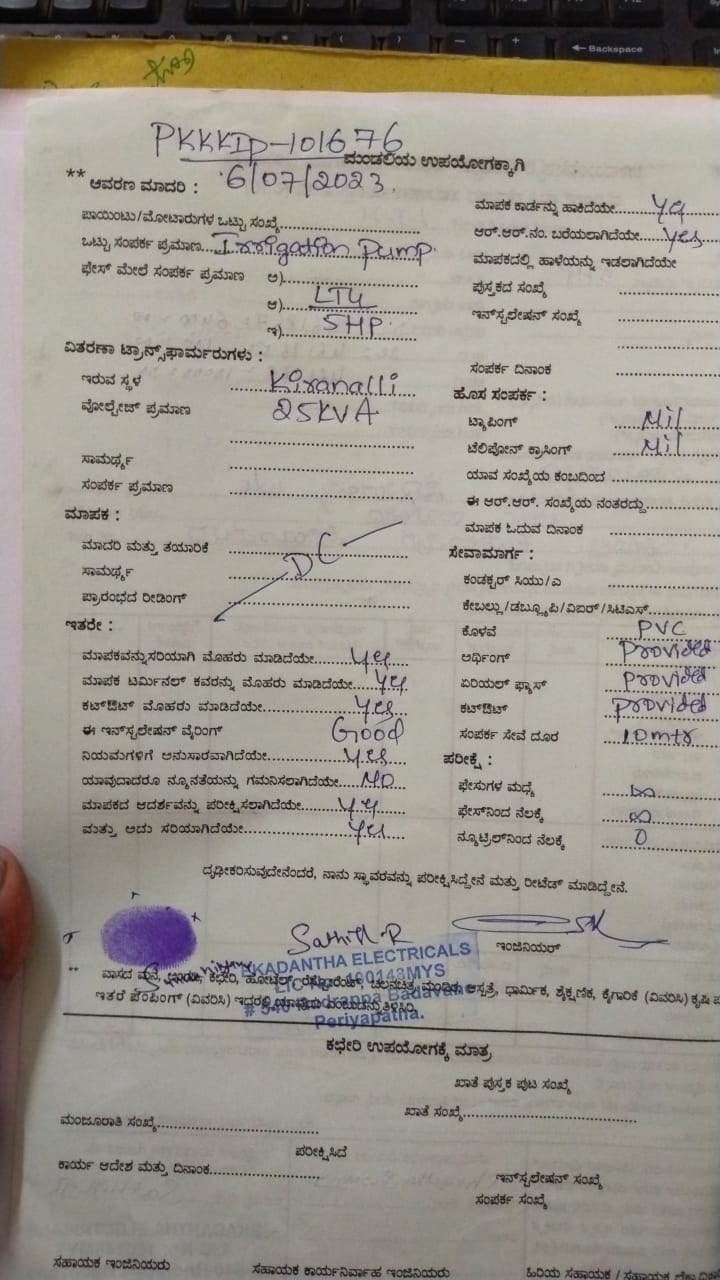 Backspace
PKKKIP-101676
ಮಂಡಲಿಯ ಉಪಯೋಗಕ್ಕಾಗಿ
** ಆವರಣ ಮಾದರಿ : 6/07/2023.
ಪಾಯಿಂಟು/ಮೋಟಾರುಗಳ ಒಟ್ಟು ಸಂಖ್ಯೆ
ಒಟ್ಟು ಸಂಪರ್ಕ ಪ್ರಮಾಣ Irrigation pump.
ಫೇಸ್ ಮೇಲೆ ಸಂಪರ್ಕ ಪ್ರಮಾಣ ಅ)
ಆ) LT4
ಇ) 5HP.
ವಿತರಣಾ ಟ್ರಾನ್ಸ್‌ಫಾರ್ಮರುಗಳು :
ಇರುವ ಸ್ಥಳ Kiranalli
ವೋಲ್ಟೇಜ್ ಪ್ರಮಾಣ 25KVA
ಸಾಮರ್ಥ್ಯ
ಸಂಪರ್ಕ ಪ್ರಮಾಣ
ಮಾಪಕ :
ಮಾದರಿ ಮತ್ತು ತಯಾರಿಕೆ DC
ಸಾಮರ್ಥ್ಯ
ಪ್ರಾರಂಭದ ರೀಡಿಂಗ್
ಇತರೇ :
ಮಾಪಕವನ್ನು ಸರಿಯಾಗಿ ಮೊಹರು ಮಾಡಿದೆಯೇ Yes
ಮಾಪಕ ಟರ್ಮಿನಲ್ ಕವರನ್ನು ಮೊಹರು ಮಾಡಿದೆಯೇ Yes
ಕಟ್‌ಔಟ್ ಮೊಹರು ಮಾಡಿದೆಯೇ Yes
ಈ ಇನ್‌ಸ್ಟಲೇಷನ್ ವೈರಿಂಗ್ Good
ನಿಯಮಗಳಿಗೆ ಅನುಸಾರವಾಗಿದೆಯೇ Yes
ಯಾವುದಾದರೂ ನ್ಯೂನತೆಯನ್ನು ಗಮನಿಸಲಾಗಿದೆಯೇ NO
ಮಾಪಕದ ಆದರ್ಶವನ್ನು ಪರೀಕ್ಷಿಸಲಾಗಿದೆಯೇ Yes
ಮತ್ತು ಅದು ಸರಿಯಾಗಿದೆಯೇ Yes
ಮಾಪಕ ಕಾರ್ಡನ್ನು ಹಾಕಿದೆಯೇ Yes
ಆರ್.ಆರ್.ನಂ. ಬರೆಯಲಾಗಿದೆಯೇ Yes
ಮಾಪಕದಲ್ಲಿ ಹಾಳೆಯನ್ನು ಇಡಲಾಗಿದೆಯೇ
ಪುಸ್ತಕದ ಸಂಖ್ಯೆ
ಇನ್‌ಸ್ಟಲೇಷನ್ ಸಂಖ್ಯೆ
ಸಂಪರ್ಕ ದಿನಾಂಕ
ಹೊಸ ಸಂಪರ್ಕ :
ಟ್ಯಾಪಿಂಗ್ Nil
ಟೆಲಿಪೋನ್ ಕ್ರಾಸಿಂಗ್ Nil
ಯಾವ ಸಂಖ್ಯೆಯ ಕಂಬದಿಂದ
ಈ ಆರ್.ಆರ್. ಸಂಖ್ಯೆಯ ನಂತರದ್ದು
ಮಾಪಕ ಓದುವ ದಿನಾಂಕ
ಸೇವಾಮಾರ್ಗ :
ಕಂಡಕ್ಟರ್ ಸಿಯು/ಎ
ಕೇಬಲ್ಲು/ಡಬ್ಲ್ಯೂಪಿ/ವಿಐಆರ್/ಸಿಟಿಎಸ್
ಕೊಳವೆ PVC
ಅರ್ಥಿಂಗ್ Provided
ಏರಿಯಲ್ ಫ್ಯೂಸ್ Provided
ಕಟ್‌ಔಟ್ Provided
ಸಂಪರ್ಕ ಸೇವೆ ದೂರ 10mtr
ಪರೀಕ್ಷೆ :
ಫೇಸುಗಳ ಮಧ್ಯೆ ∞
ಫೇಸ್‌ನಿಂದ ನೆಲಕ್ಕೆ ∞
ನ್ಯೂಟ್ರಲ್‌ನಿಂದ ನೆಲಕ್ಕೆ 0
ದೃಢೀಕರಿಸುವುದೇನೆಂದರೆ, ನಾನು ಸ್ಥಾವರವನ್ನು ಪರೀಕ್ಷಿಸಿದ್ದೇನೆ ಮತ್ತು ರೀಟೆಡ್ ಮಾಡಿದ್ದೇನೆ.
Sathish R
ಇಂಜಿನಿಯರ್
EKADANTHA ELECTRICALS
** ವಾಸದ ಮನೆ, ಅಂಗಡಿ, ಕಛೇರಿ, ಹೋಟೆಲ್, ರೆಸ್ಟೋರೆಂಟ್, ಚಲನಚಿತ್ರ ಮಂದಿರ, ಆಸ್ಪತ್ರೆ, ಧಾರ್ಮಿಕ, ಶೈಕ್ಷಣಿಕ, ಕೈಗಾರಿಕೆ (ವಿವರಿಸಿ) ಕೃಷಿ
ಇತರೆ ಪಂಪಿಂಗ್ (ವಿವರಿಸಿ) ಇದ್ದರಲ್ಲಿ
Periyapatha.
ಕಛೇರಿ ಉಪಯೋಗಕ್ಕೆ ಮಾತ್ರ
ಖಾತೆ ಪುಸ್ತಕ ಪುಟ ಸಂಖ್ಯೆ
ಮಂಜೂರಾತಿ ಸಂಖ್ಯೆ ಖಾತೆ ಸಂಖ್ಯೆ
ಪರೀಕ್ಷಿಸಿದೆ
ಕಾರ್ಯ ಆದೇಶ ಮತ್ತು ದಿನಾಂಕ ಇನ್‌ಸ್ಟಲೇಷನ್ ಸಂಖ್ಯೆ
ಸಂಪರ್ಕ ಸಂಖ್ಯೆ
ಸಹಾಯಕ ಇಂಜಿನಿಯರು ಸಹಾಯಕ ಕಾರ್ಯನಿರ್ವಾಹ ಇಂಜಿನಿಯರು ಹಿರಿಯ ಸಹಾಯಕ / ಸಹಾಯಕ